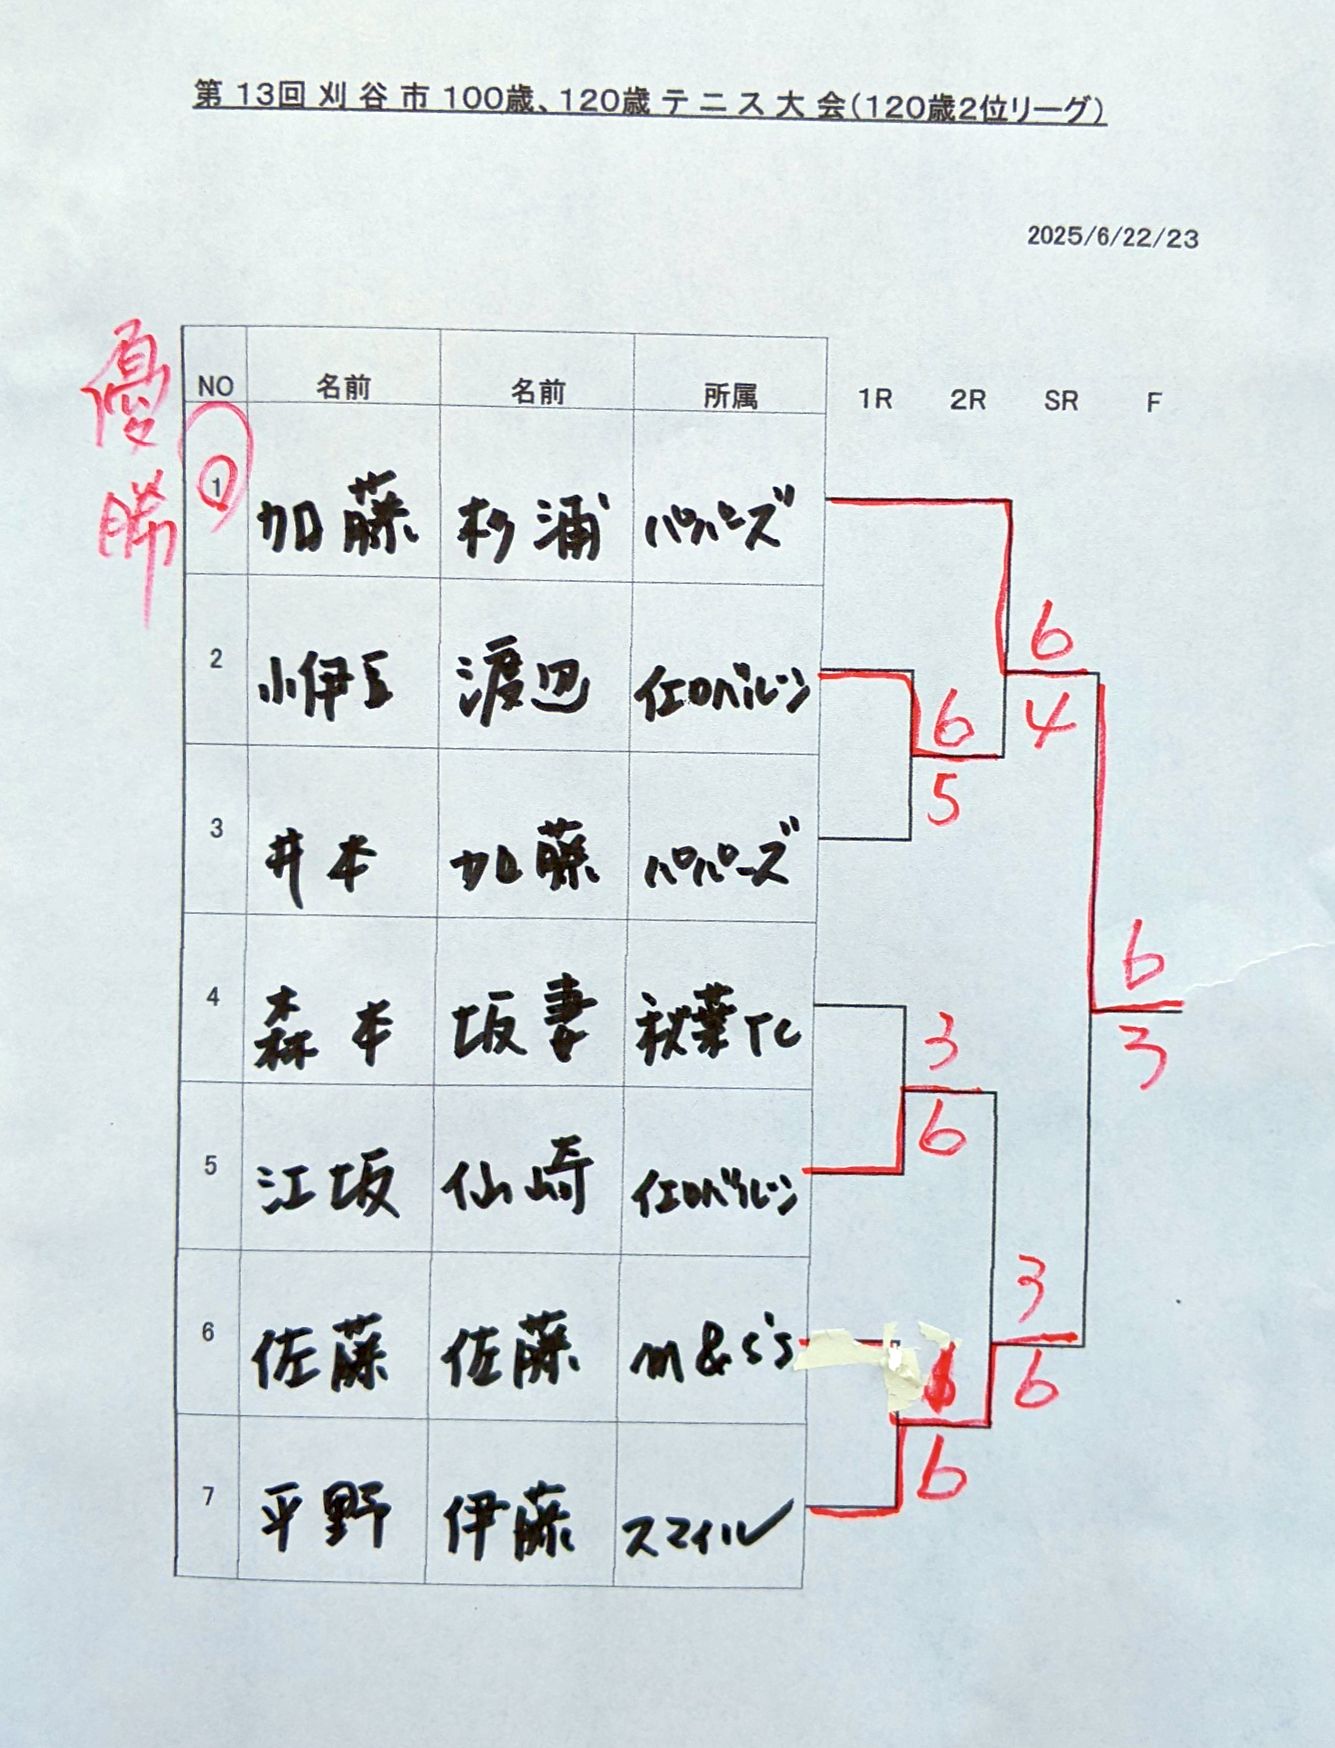 第13回 刈谷市 100歳、120歳 テニス大会(120歳2位リーグ)
2025/6/22/23
優勝
NO 名前 名前 所属 1R 2R SR F
1 加藤 杉浦 パパーズ
6
2 小伊豆 渡辺 イエロバルーン
6 4
5
3 井本 加藤 パパーズ
6
4 森本 坂妻 秋葉TC
3 3
6
5 江坂 仙崎 イエロバルーン
3
6 佐藤 佐藤 m&s's
6
6
7 平野 伊藤 スマイル